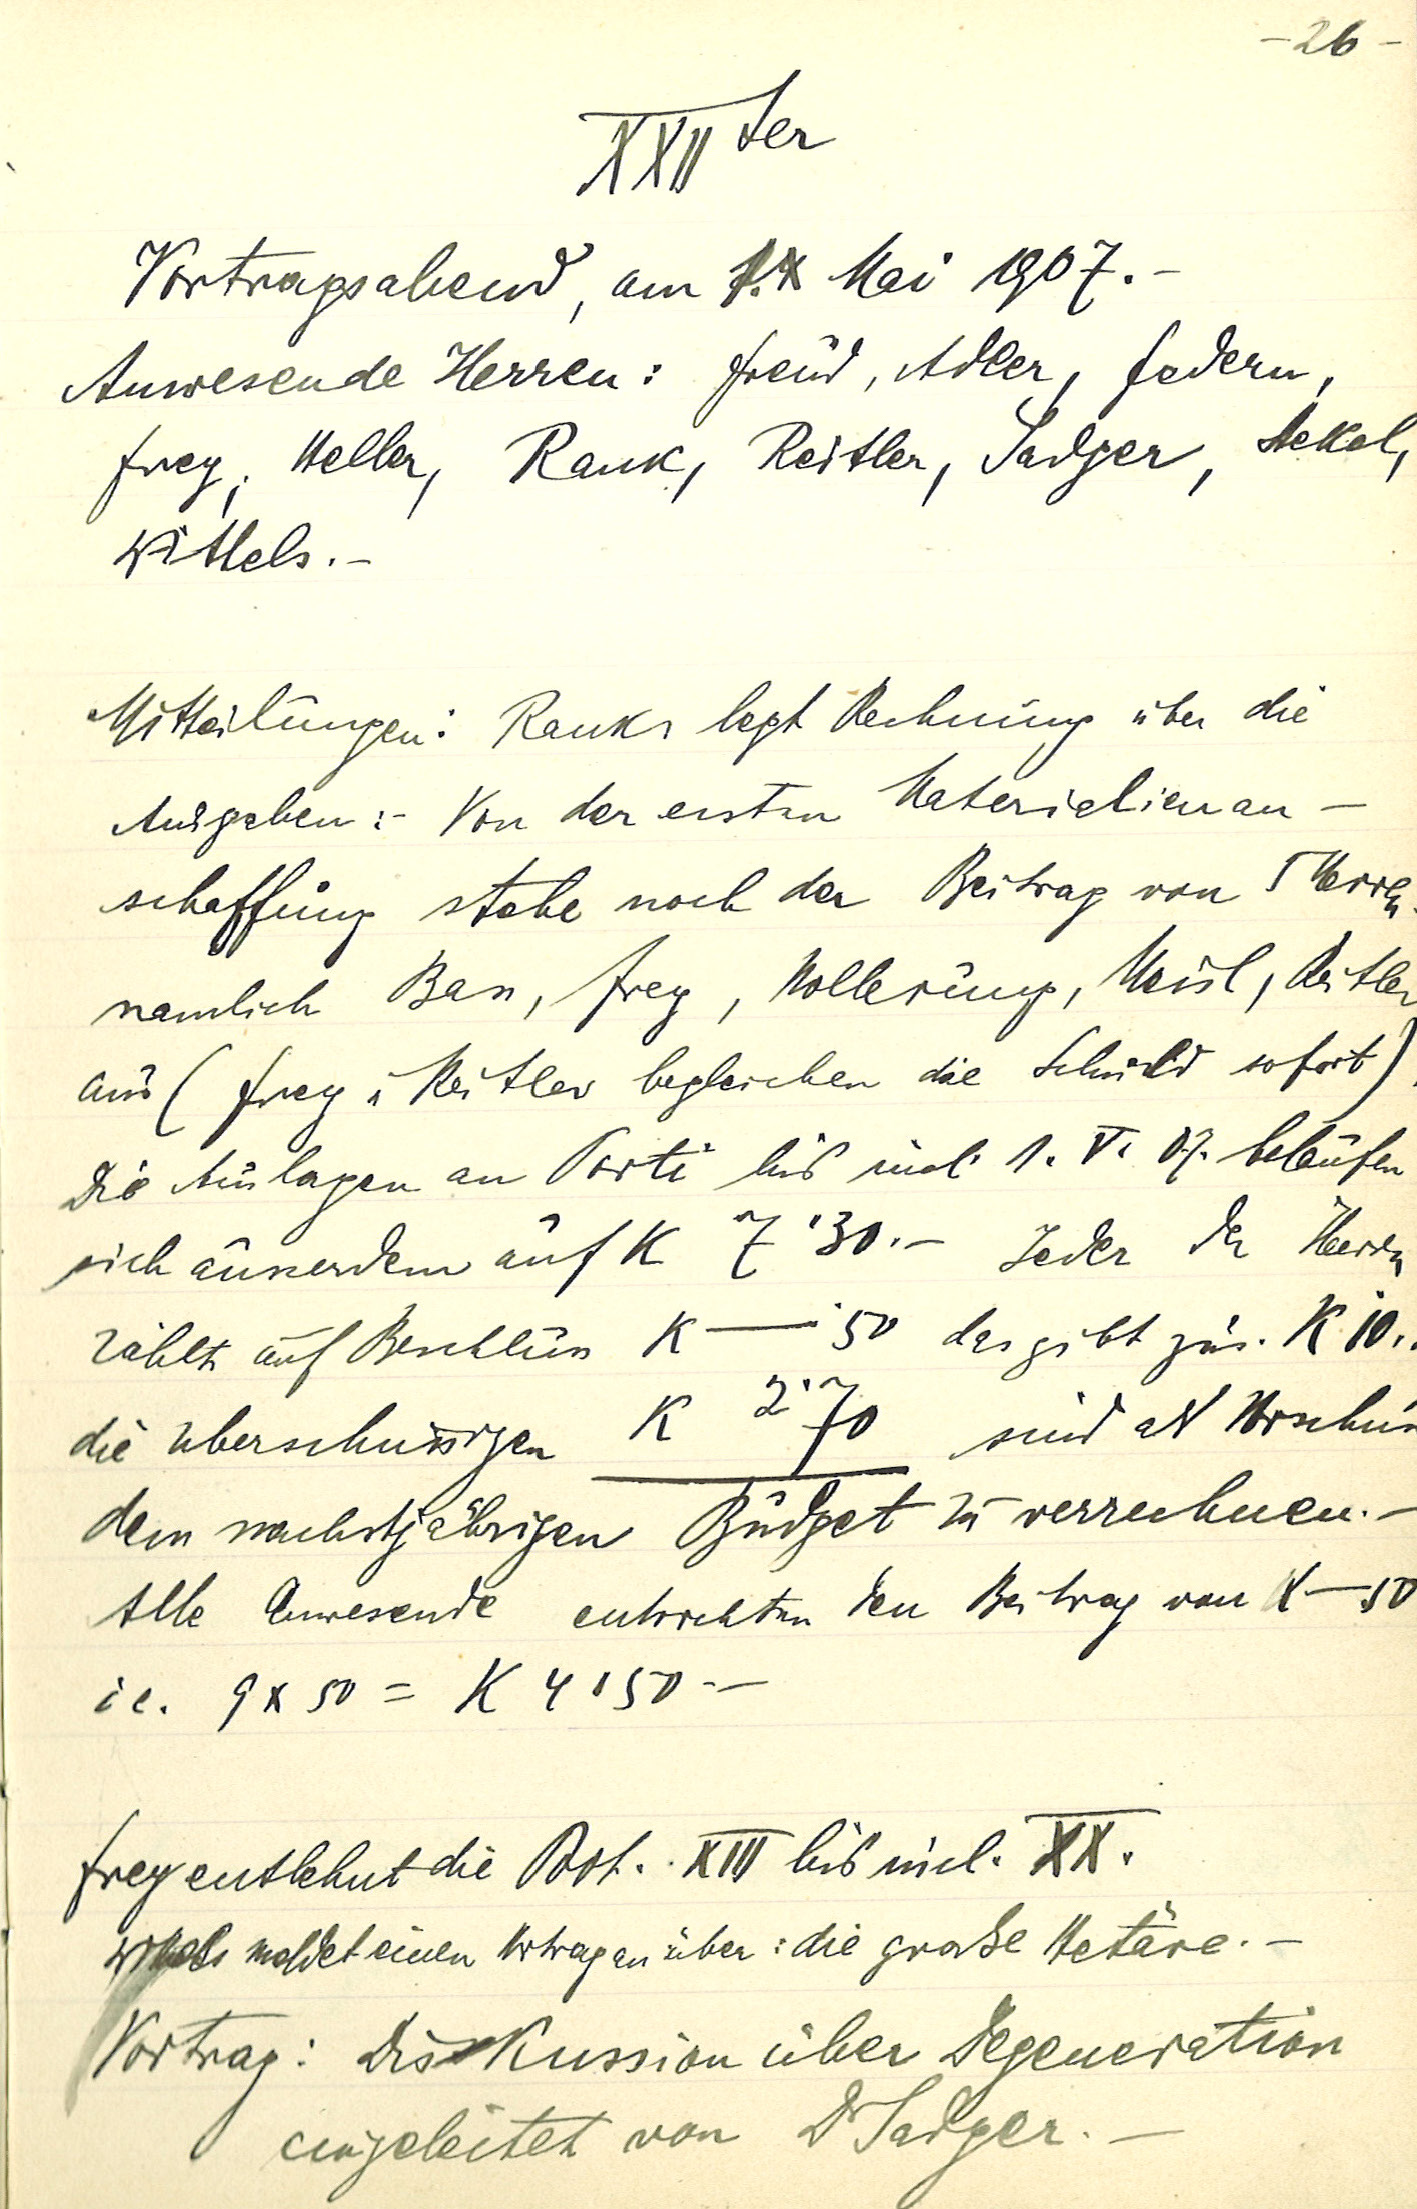 - 26 -
XXII ter
Vortragsabend, am 1. Mai 1907. -
Anwesende Herren: Freud, Adler, Federn,
Frey, Heller, Rank, Reitler, Sadger, Stekel,
Wittels. -
Mitteilungen: Rank legt Rechnung über die
Ausgaben: - Von der ersten Materialienan-
schaffung stehe noch der Beitrag von 5 Herren
nämlich Bass, Frey, Hollerung, Meisl, Reitler
aus (Frey u Reitler begleichen die Schuld sofort).
Die Auslagen an Porti bis incl. 1. V. 07. belaufen
sich ausserdem auf K 7'30. - Jeder der Herren
zahlt auf Beschluss K —'50 das gibt zus. K 10..
die überschüssigen K 2'70 sind als Vorschuss
dem nächstjährigen Budget zu verrechnen. -
Alle Anwesende entrichten den Beitrag von K — 50
i e. 9 x 50 = K 4'50 -
Frey entlehnt die Prot. XIII bis incl. XX.
Wittels meldet einen Vortrag an über: die große Hetäre. -
Vortrag: Diskussion über Degeneration
eingeleitet von Dr Sadger. -